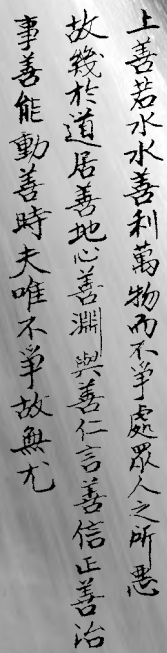 上善若水水善利萬物而不爭處眾人之所惡
故幾於道居善地心善淵與善仁言善信正善治
事善能動善時夫唯不爭故無尤